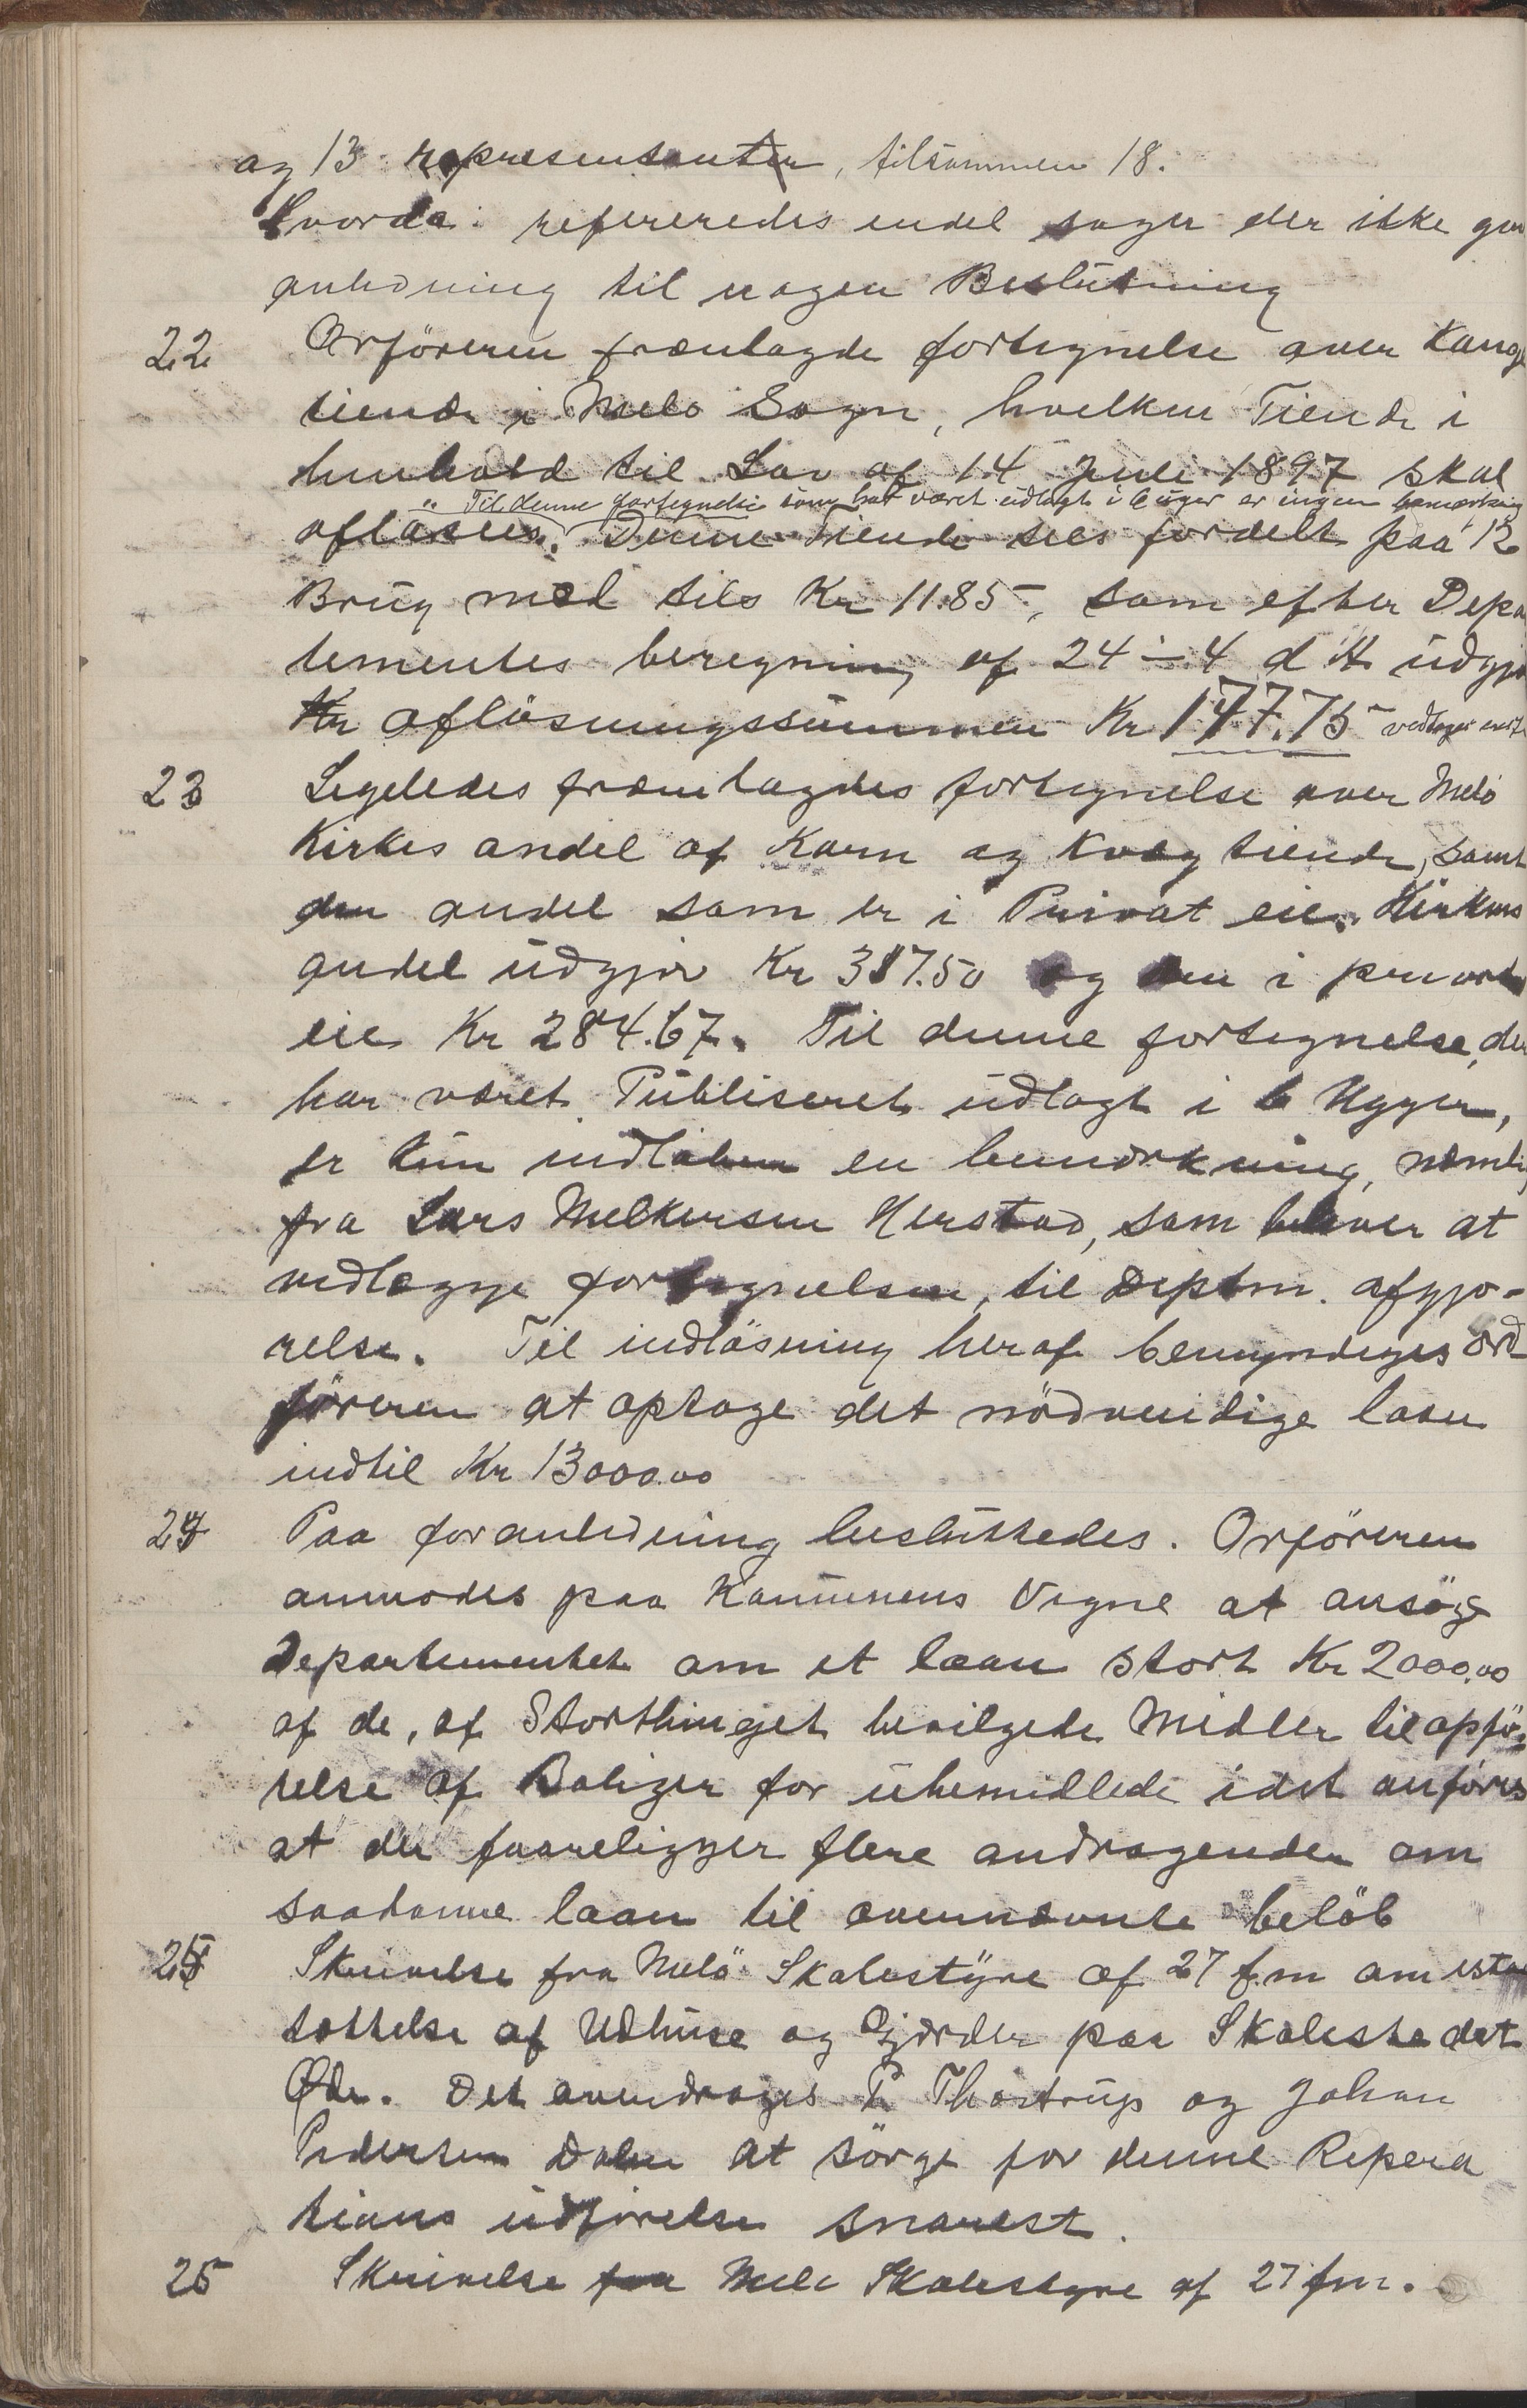 og 13 representanter, tilsammen 18.
hvorda: refereredes endel sager der ikke gav
anledning til nogen Beslutning
22 Orföreren fremlagde fortegnelse over Konge
tiende i Melö Sogn, hvelken Tiende i
henhold til Lov af 14 Juli 1897 skal
Til denne fortegnelse som har været udlagt i 6 uger er ingen bemærkning
aflöses. Denne tiende sees fordelt paa 12
Brug med tils Kr 11.85, som efter Depa
tementes beregning af 24-4 d A udgjör
Kr aflösningssummen Kr 177.75
23 Ligeledes fremlagdes fortegnelse over Melö
Kirkes andel af Korn og Kvæg tiende, samt
den andel som er i Privat eie. Kirkens
andel udgjör Kr 387.50 og den i privat
eie Kr 284.67. Til denne fortegnelse, der
har været Publiseret udlagt i 6 Ugger,
er kun indloben en bemærkning, nemlig
fra Lars Melkersen Herstad, som bliver at
vedlægge fortegnelsen, til Deptm. afgjo-
relse. Til indlösning heraf bemyndiges Ord
föreren at optage det nödvendige laan
indtil Kr 13000.00
24 Paa foranledning besluttedes. Orföreren
anmodes paa Kommunens Vegne at ansöge
Departementet om et laan stort Kr 2000.00
af de, af Storthinget bevilgede Midler til opfö-
relse af Boliger for ubemidlede idet anföres
at der foareligger flere andragender om
saadanne laan til ovennævnte belöb
25 Skrivelse fra Melö Skolestyre af 27 f.m om ista
tættelse af Udhuse og Gjærder paa Skolestedet
Øde. Det overdrages P. Thostrup og Johan
Pedersen Dalen at sörge for denne Repera
tions udförelse snarest.
25 Skrivelse fra Melö Skolestyre af 27 fm.